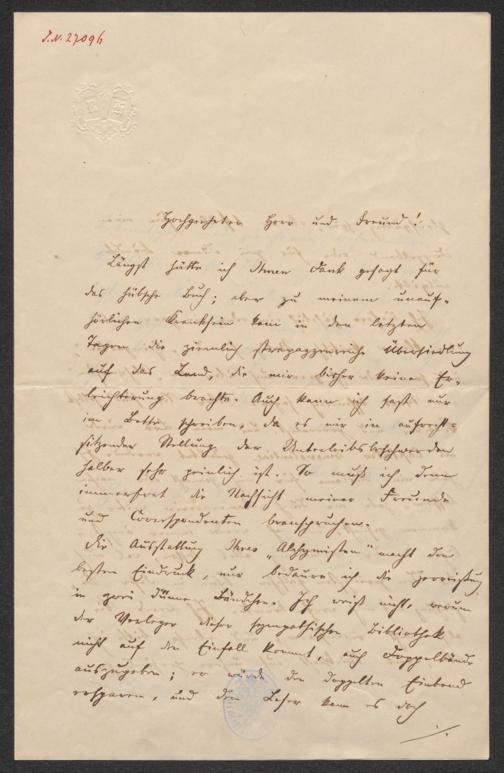 J.N. 27096
Hochgeehrter Herr und Freund!
Längst hätte ich Ihnen Dank gesagt für
das hübsche Buch; aber zu meinem unauf-
hörlichen Kranksein kam in den letzten
Tagen die ziemlich strapazzenreiche Übersiedlung
auf das Land, die mir bisher keine Er-
leichterung brachte. Auch kann ich fast nur
im Bette schreiben, da es mir in aufrecht-
sitzender Stellung der Unterleibsbeschwerden
halber sehr peinlich ist. So muß ich denn
immerfort die Nachsicht meiner Freunde
und Correspondenten beanspruchen.
Die Ausstattung Ihres „Alchymisten" macht den
besten Eindruck, nur bedaure ich die Zerreißung
in zwei dünne Bändchen. Ich weiß nicht, warum
der Verleger dieser sympathischen Bibliothek
nicht auf den Einfall kommt, auch Doppelbände
auszugeben; er würde den doppelten Einband
ersparen, und dem Leser kann es doch